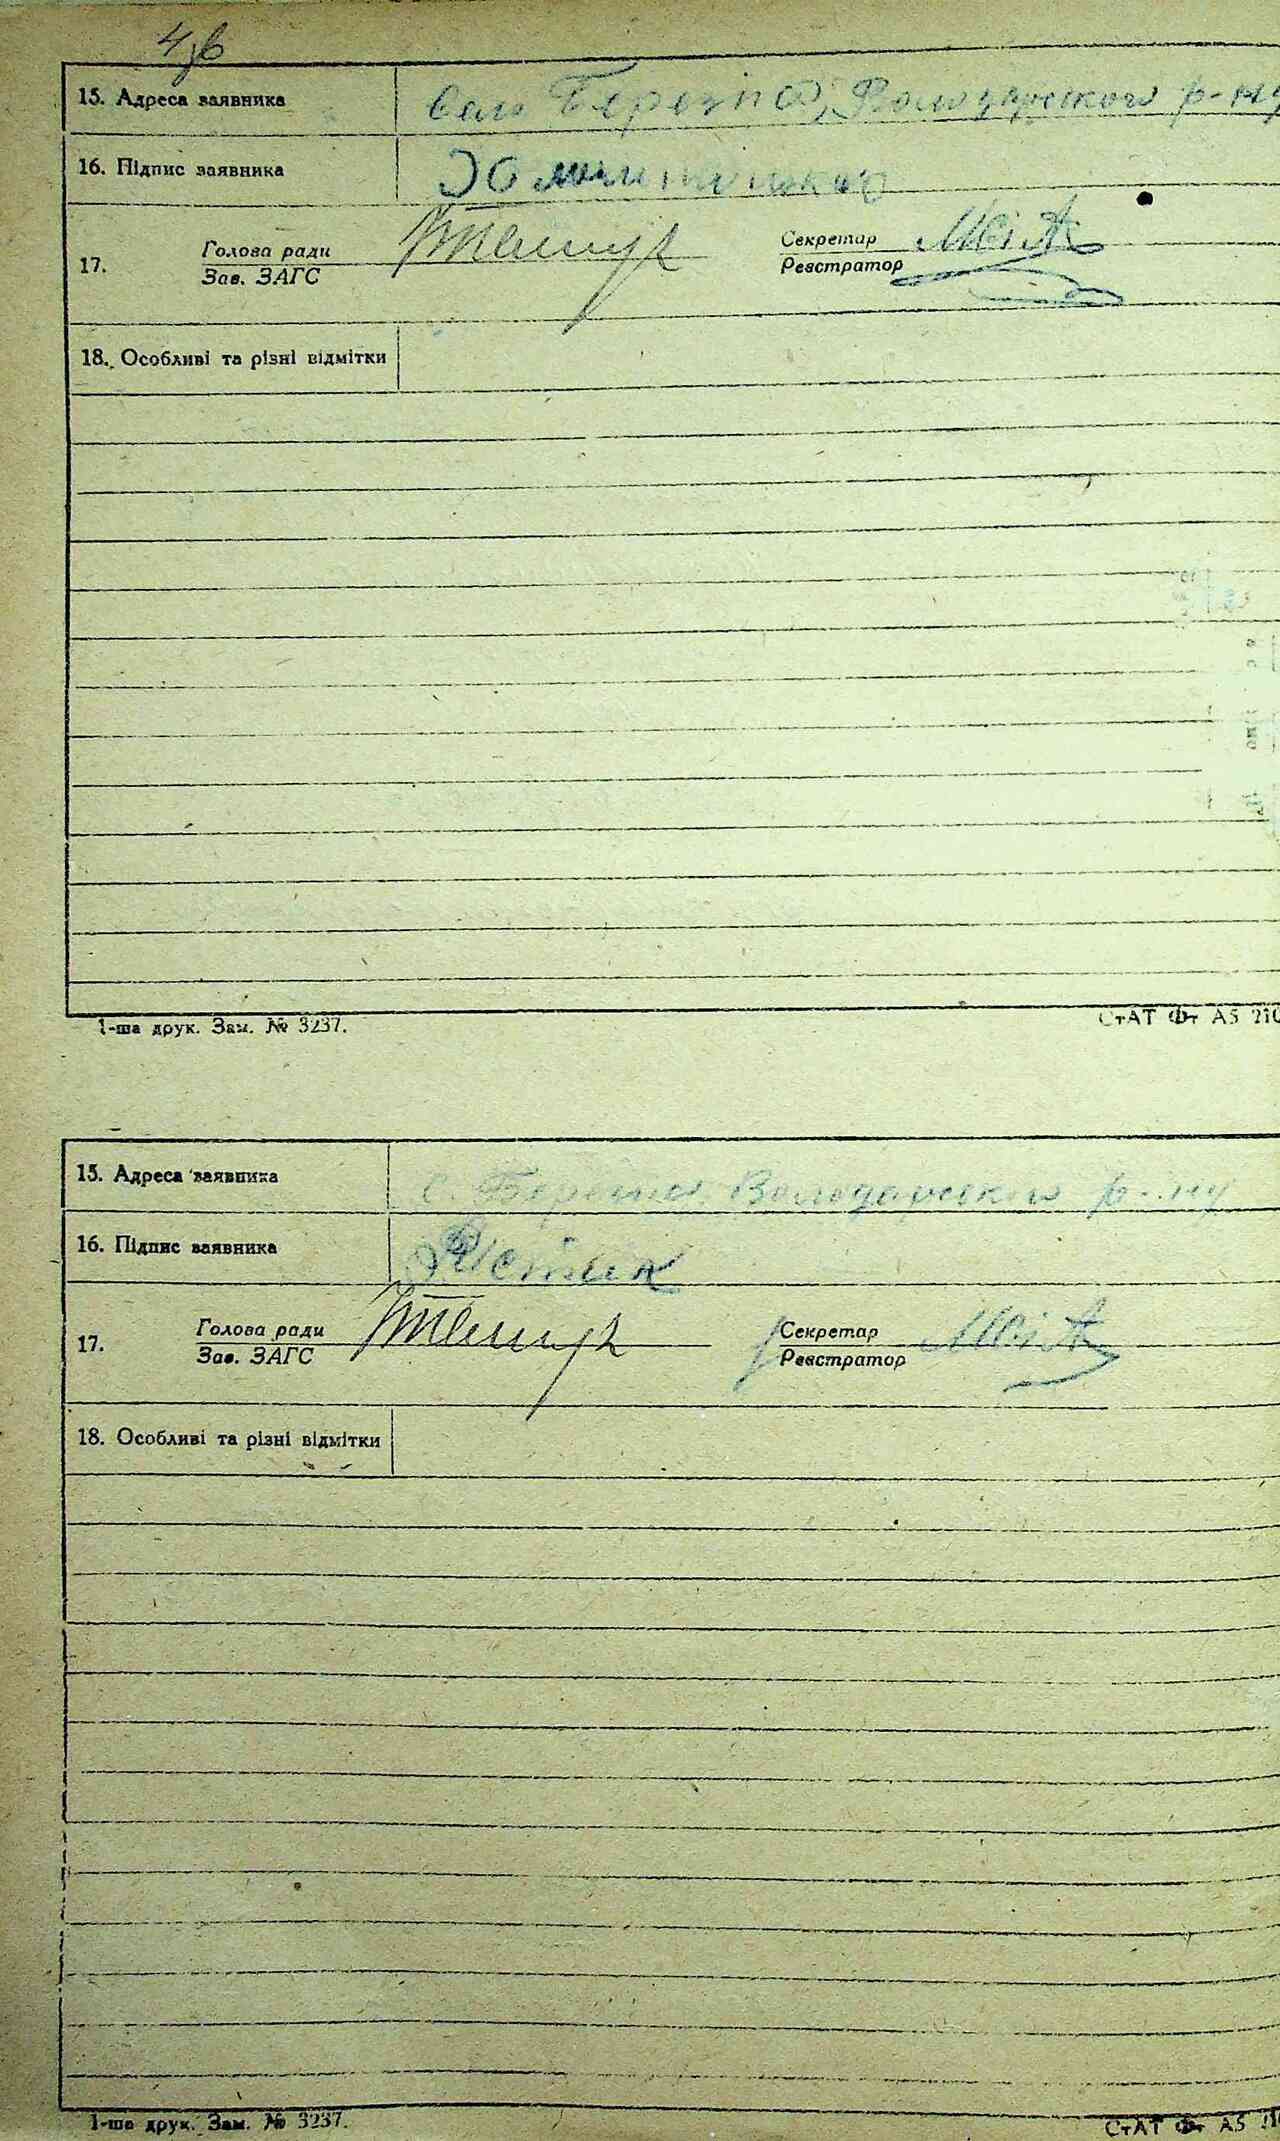 4зв
15. Адреса заявника
село Березна, Володарського р-ну
16. Підпис заявника
17.
Голова ради
Зав. ЗАГС
Секретар
Реєстратор
18. Особливі та різні відмітки
1-ша друк. Зам. № 3237.
СтАТ Фт А5 210
15. Адреса заявника
с. Березна Володарського р-ну
16. Підпис заявника
17.
Голова ради
Зав. ЗАГС
Секретар
Реєстратор
18. Особливі та різні відмітки
1-ша друк. Зам. № 3237.
СтАТ Фт А5 210